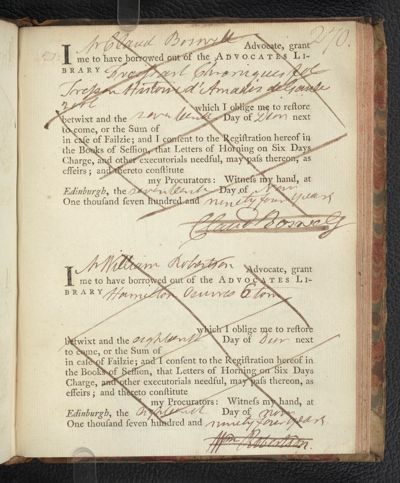 270.
I Mr Claud Boswell Advocate, grant
me to have borrowed out of the ADVOCATES LI-
BRARY Froissart Chroniques fol
Tressan Histoire d'Amadis de Gaule
2 vol
which I oblige me to restore
betwixt and the seventeenth Day of next
to come, or the Sum of
in case of Failzie; and I consent to the Registration hereof in
the Books of Session, that Letters of Horning on Six Days
Charge, and other executorials needful, may pass thereon, as
effeirs; and thereto constitute
my Procurators: Witness my hand, at
Edinburgh, the seventeenth Day of Novr
One thousand seven hundred and ninety four years
Claud Boswell
I Mr William Robertson Advocate, grant
me to have borrowed out of the ADVOCATES LI-
BRARY Hamilton Oeuvres 6 tom
which I oblige me to restore
betwixt and the eighteenth Day of Decr next
to come, or the Sum of
in case of Failzie; and I consent to the Registration hereof in
the Books of Session, that Letters of Horning on Six Days
Charge, and other executorials needful, may pass thereon, as
effeirs; and thereto constitute
my Procurators: Witness my hand, at
Edinburgh, the eighteenth Day of Novr
One thousand seven hundred and ninety four years
Wm Robertson.